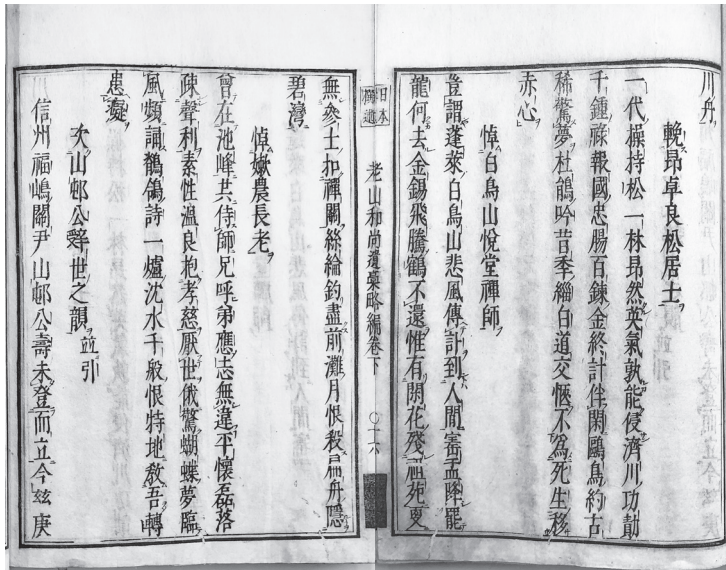 川舟
輓昂卓良松居士
一代操持松一林昂然英氣孰能侵濟川功勣
千鍾祿報國忠腸百鍊金終計伴閑鷗鳥約古
稀驚夢杜鵑吟昔季緇白道交愜不爲死生移
赤心
悼白鳥山悅堂禪師
豈謂蓬萊白鳥山悲風傳訃到人間盂降罷
龍何去金錫飛騰鶴不還惟有閑花殘苑更
日本
老山和尚遺藁略編卷下 〇十六
無參士扣禪關絲綸釣盡前灘月恨殺扁舟隱
碧灣
悼嫩農長老
曾在池峰共侍師兄呼弟應志無違平懷磊落
疎聲利素性溫良抱孝慈厭世俄驚蝴蝶夢臨
風頻誦鶺鴒詩一爐沈水千般恨特地敎吾轉
愚癡
次山邨公辭世之韻 並引
信州福嶋關尹山邨公壽未登而立今玆庚